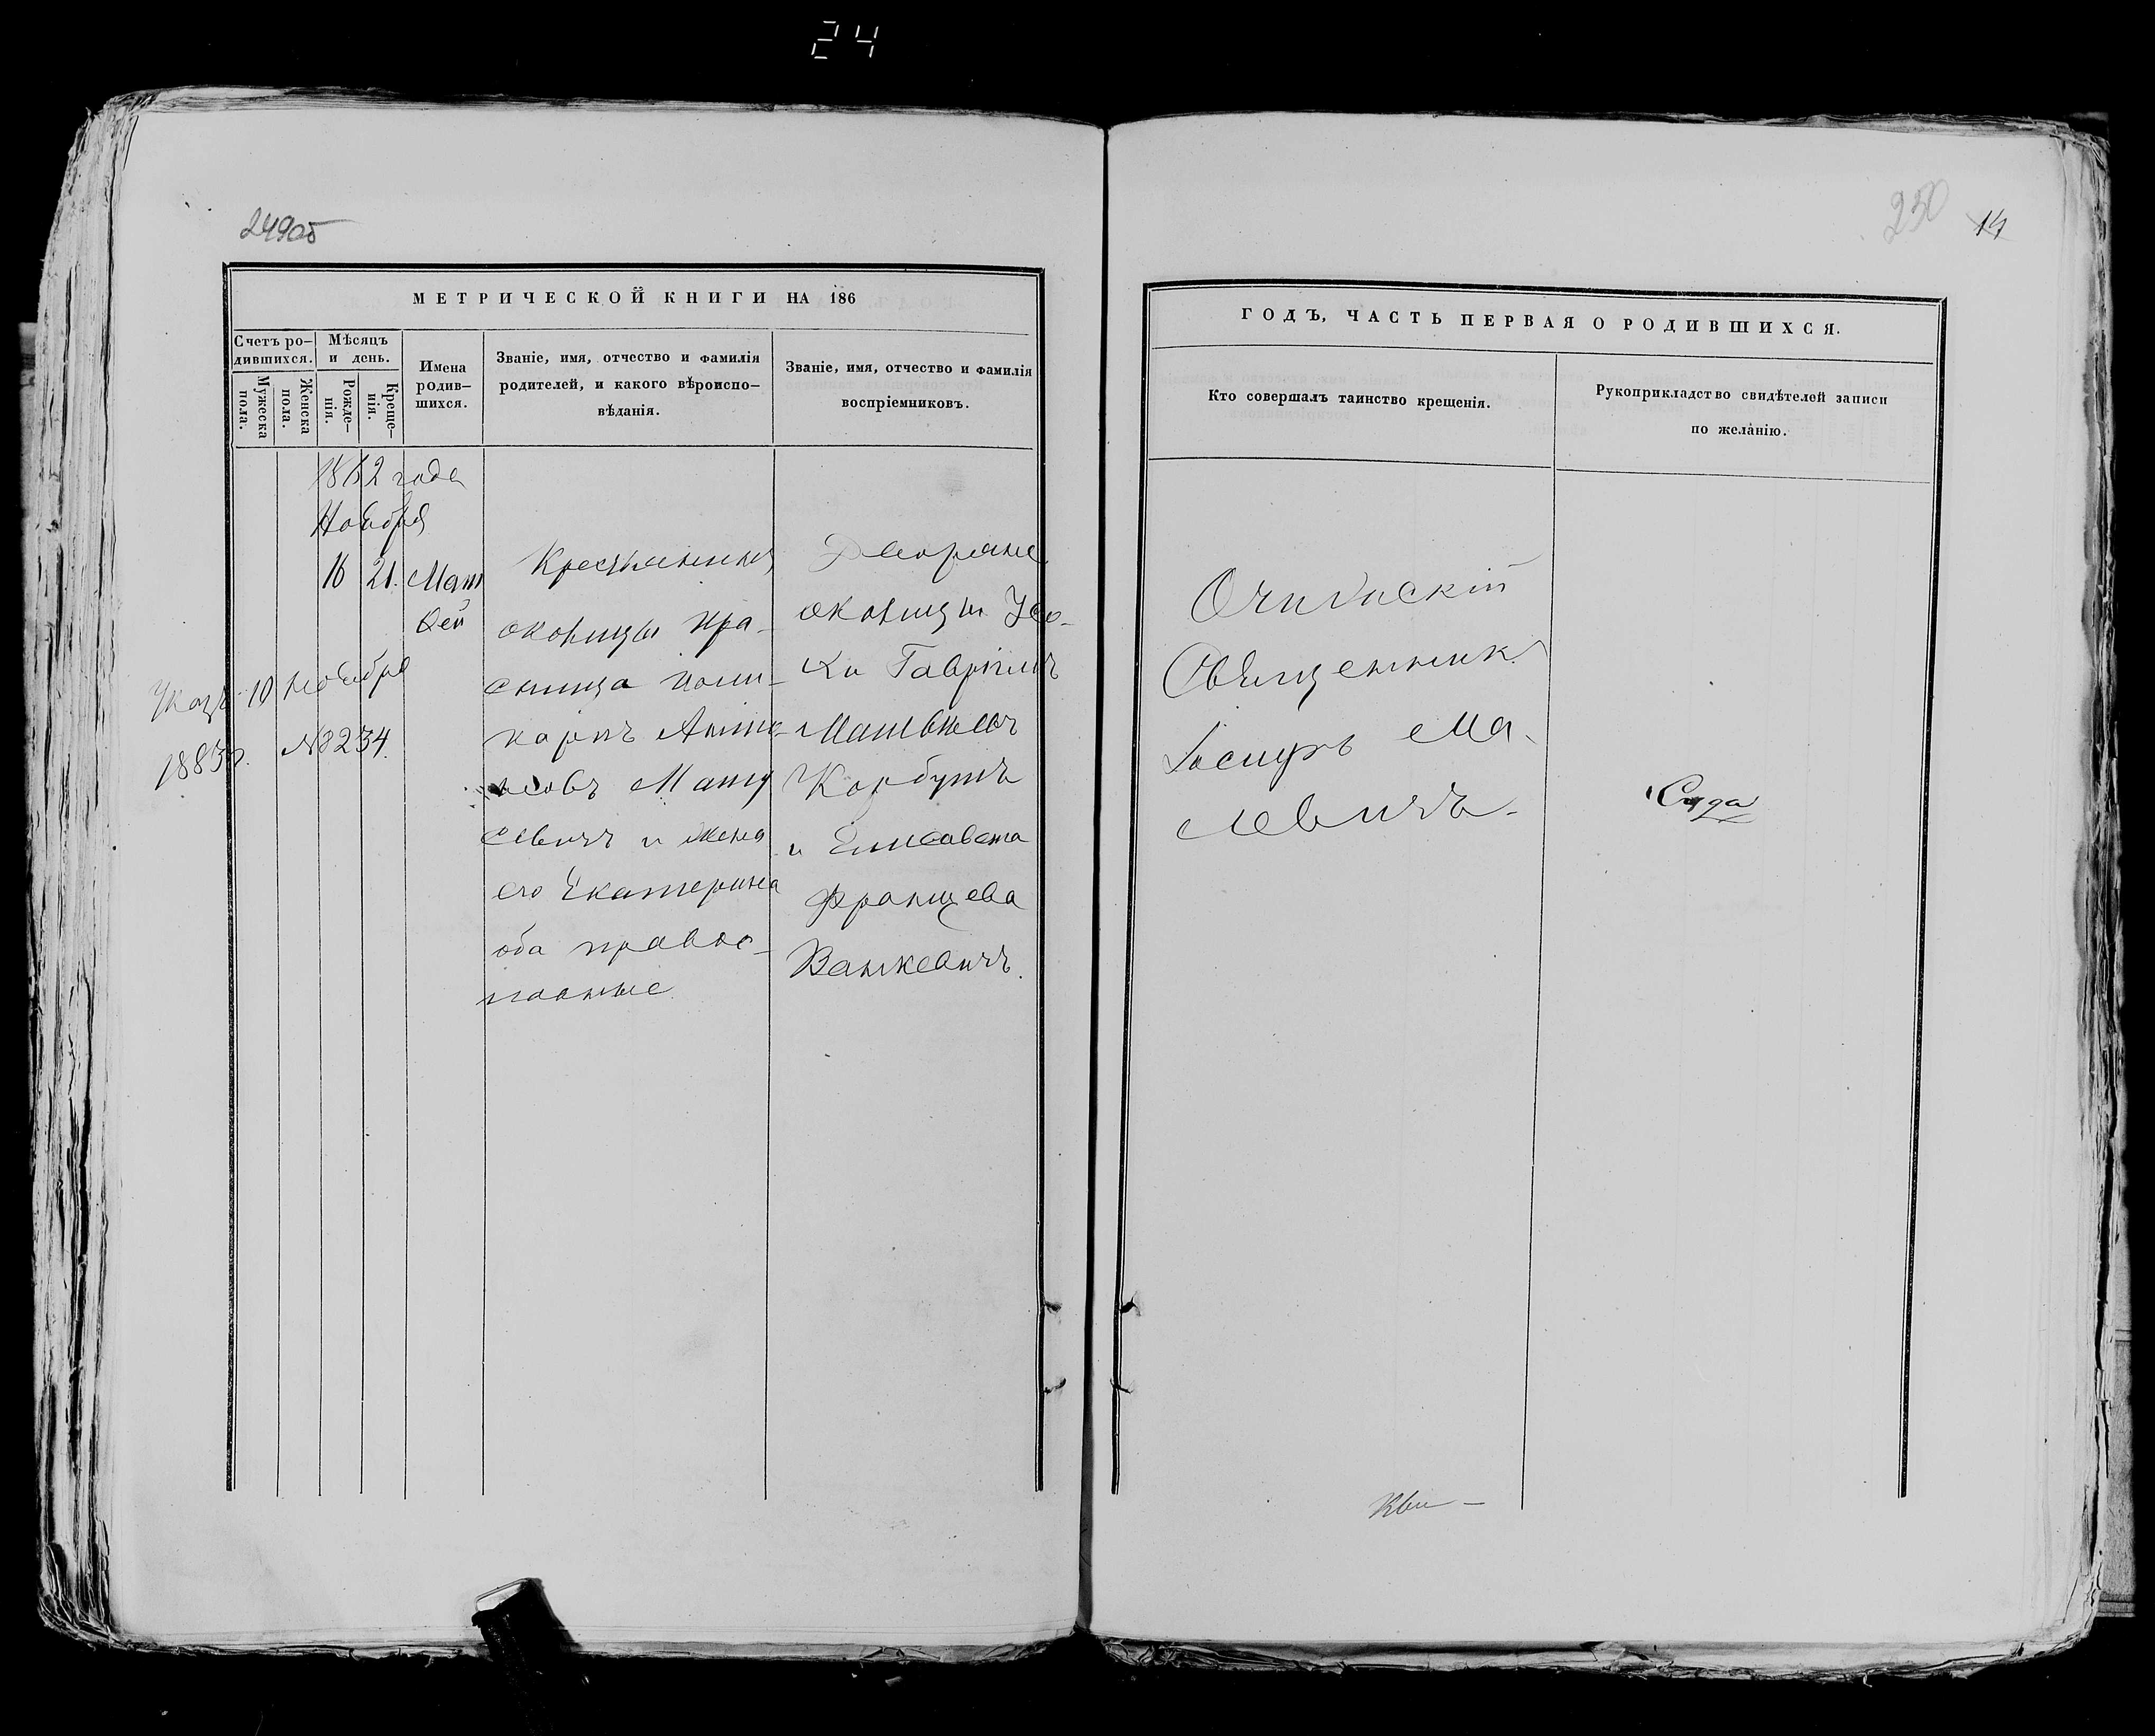 24
24905
МЕТРИЧЕСКОЙ КНИГИ НА 186
Счетъ ро-
дившихся.
Мѣсяцъ
и день.
Мужеска
пола.
Женска
пола.
Рожде-
нія.
Креще-
нія.
Имена
родив-
шихся.
Званіе, имя, отчество и фамилія
родителей, и какого вѣроиспо-
вѣданія.
Званіе, имя, отчество и фамилія
воспріемниковъ.
1862 года
Ноября
16 21. Мат
ѳей
Указъ 10 Ноября
1883г. №8234.
Крестьянинъ
околицы Кра-
сница Поли-
карпъ Антно
новъ Мату
севичъ и жена
его Екатерина
оба право-
славные
Дворяне
околицы Усо-
ки Гавріилъ
Матвѣевъ
Корбутъ
и Елисавета
Францева
Ванкевичъ.
250
14
ГОДЪ, ЧАСТЬ ПЕРВАЯ О РОДИВШИХСЯ.
Кто совершалъ таинство крещенія.
Рукоприкладство свидѣтелей записи
по желанію.
Священникъ
Іосифъ Ма-
левичъ.